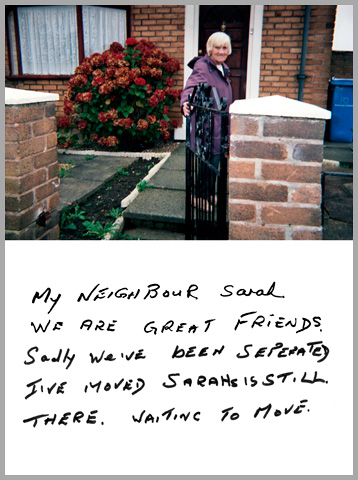 My NEIGHBOUR Sarah
WE ARE GREAT FRIENDS.
Sadly We've BEEN SEPERATED
I'VE MOVED SARAHS IS STILL.
THERE. WAITING TO MOVE.